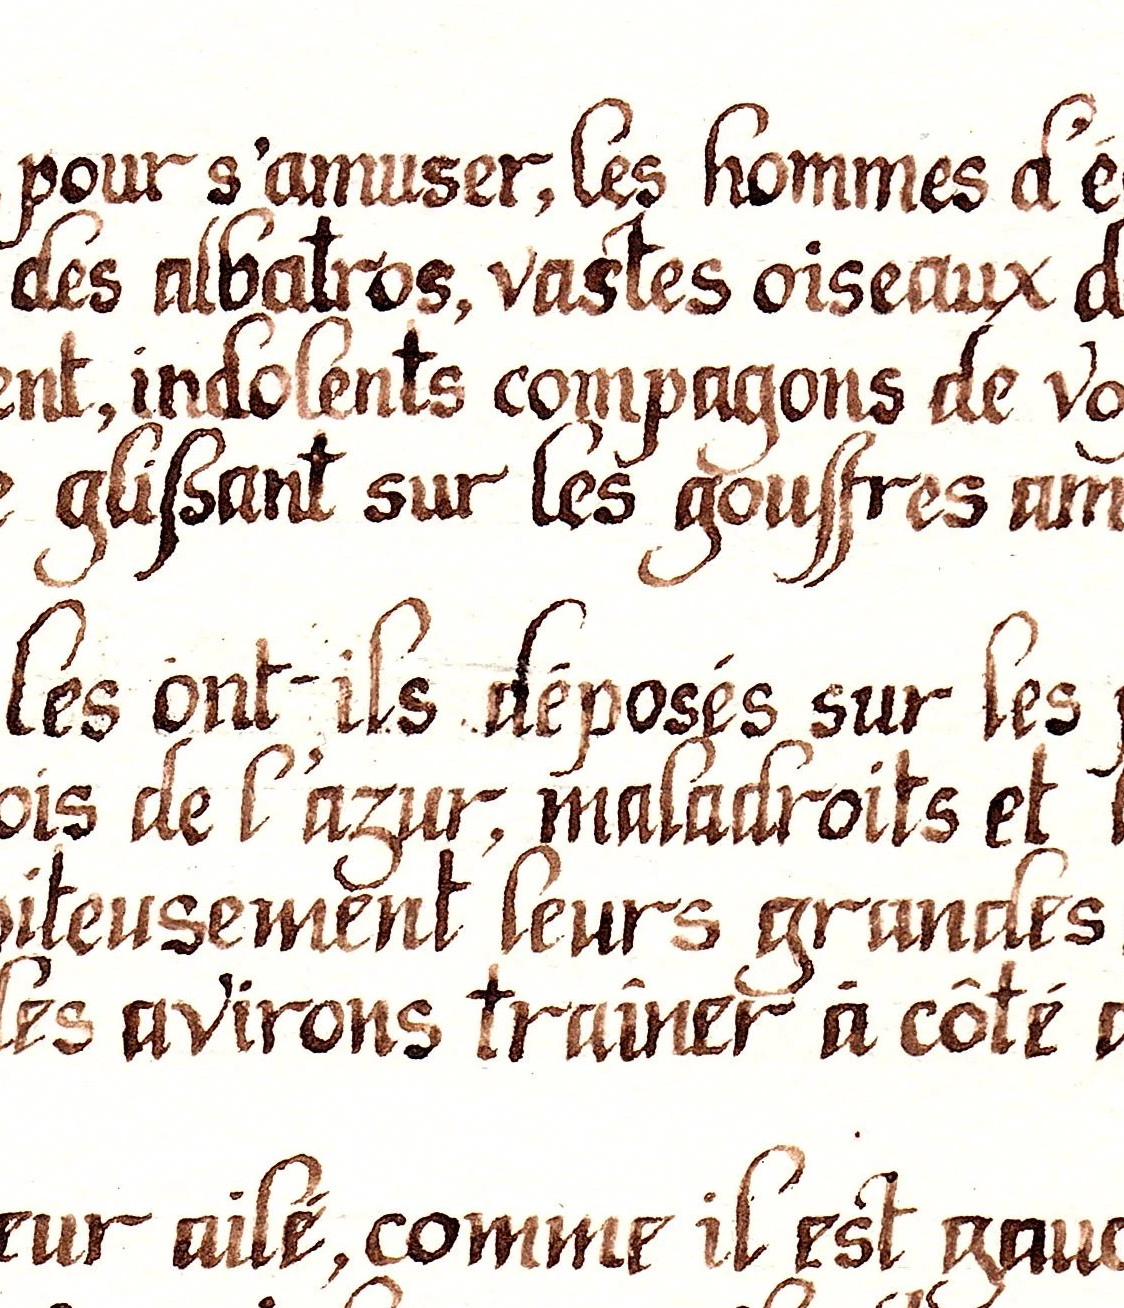 pour s'amuser, les hommes d'é
des albatros, vastes oiseaux d
ent, indolents compagons de vo
e glißant sur les gouffres am
les ont-ils déposés sur les p
ois de l'azur, maladroits et
iteusement leurs grandes
les avirons traîner à côté d
eur ailé, comme il est gauc